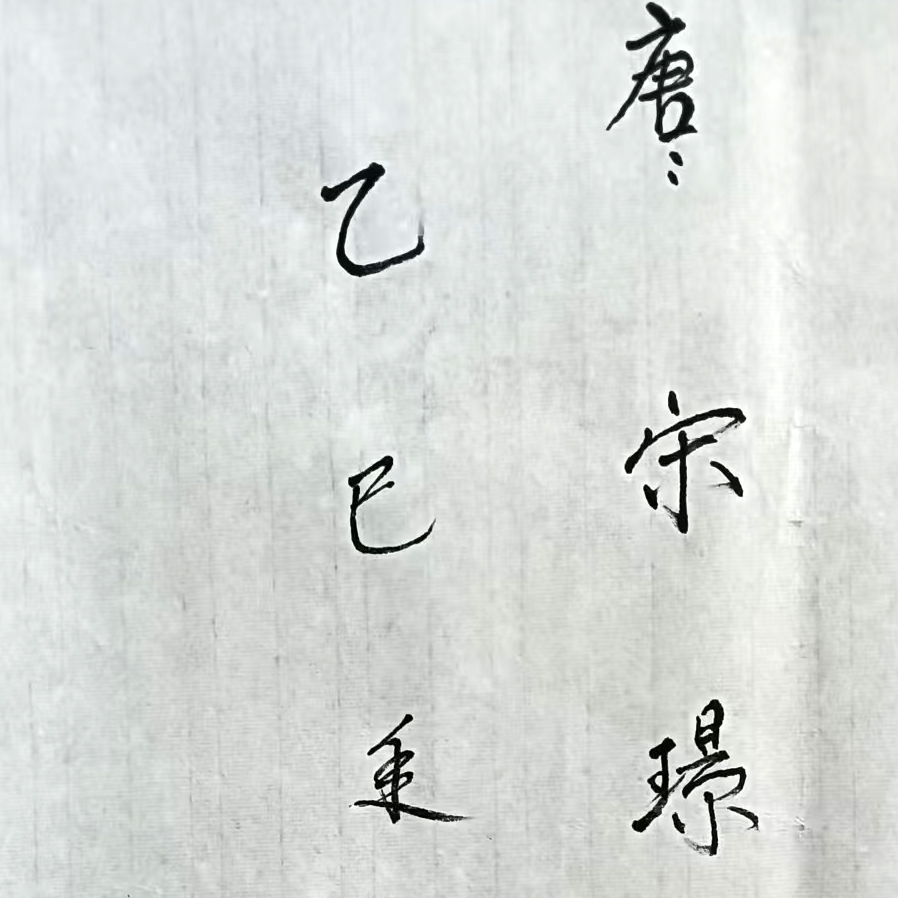 唐：宋璟
乙巳